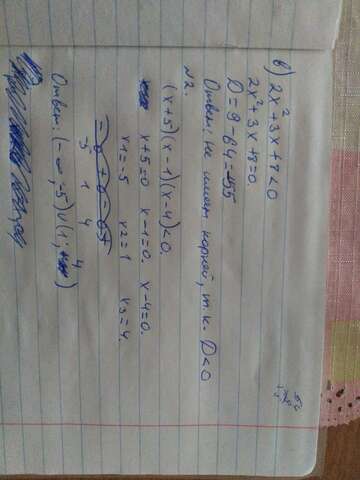 в) 2x² + 3x + 8 < 0
2x² + 3x + 8 = 0.
D = 9 - 64 = -55
Ответ: не имеет корней, т.к. D < 0
№2.
(x+5)(x-1)(x-4) < 0.
x+5=0 x-1=0. x-4=0.
x1=-5 x2=1 x3=4.
- + - +
-5 1 4
Ответ: (-∞; -5) ∪ (1; 4)